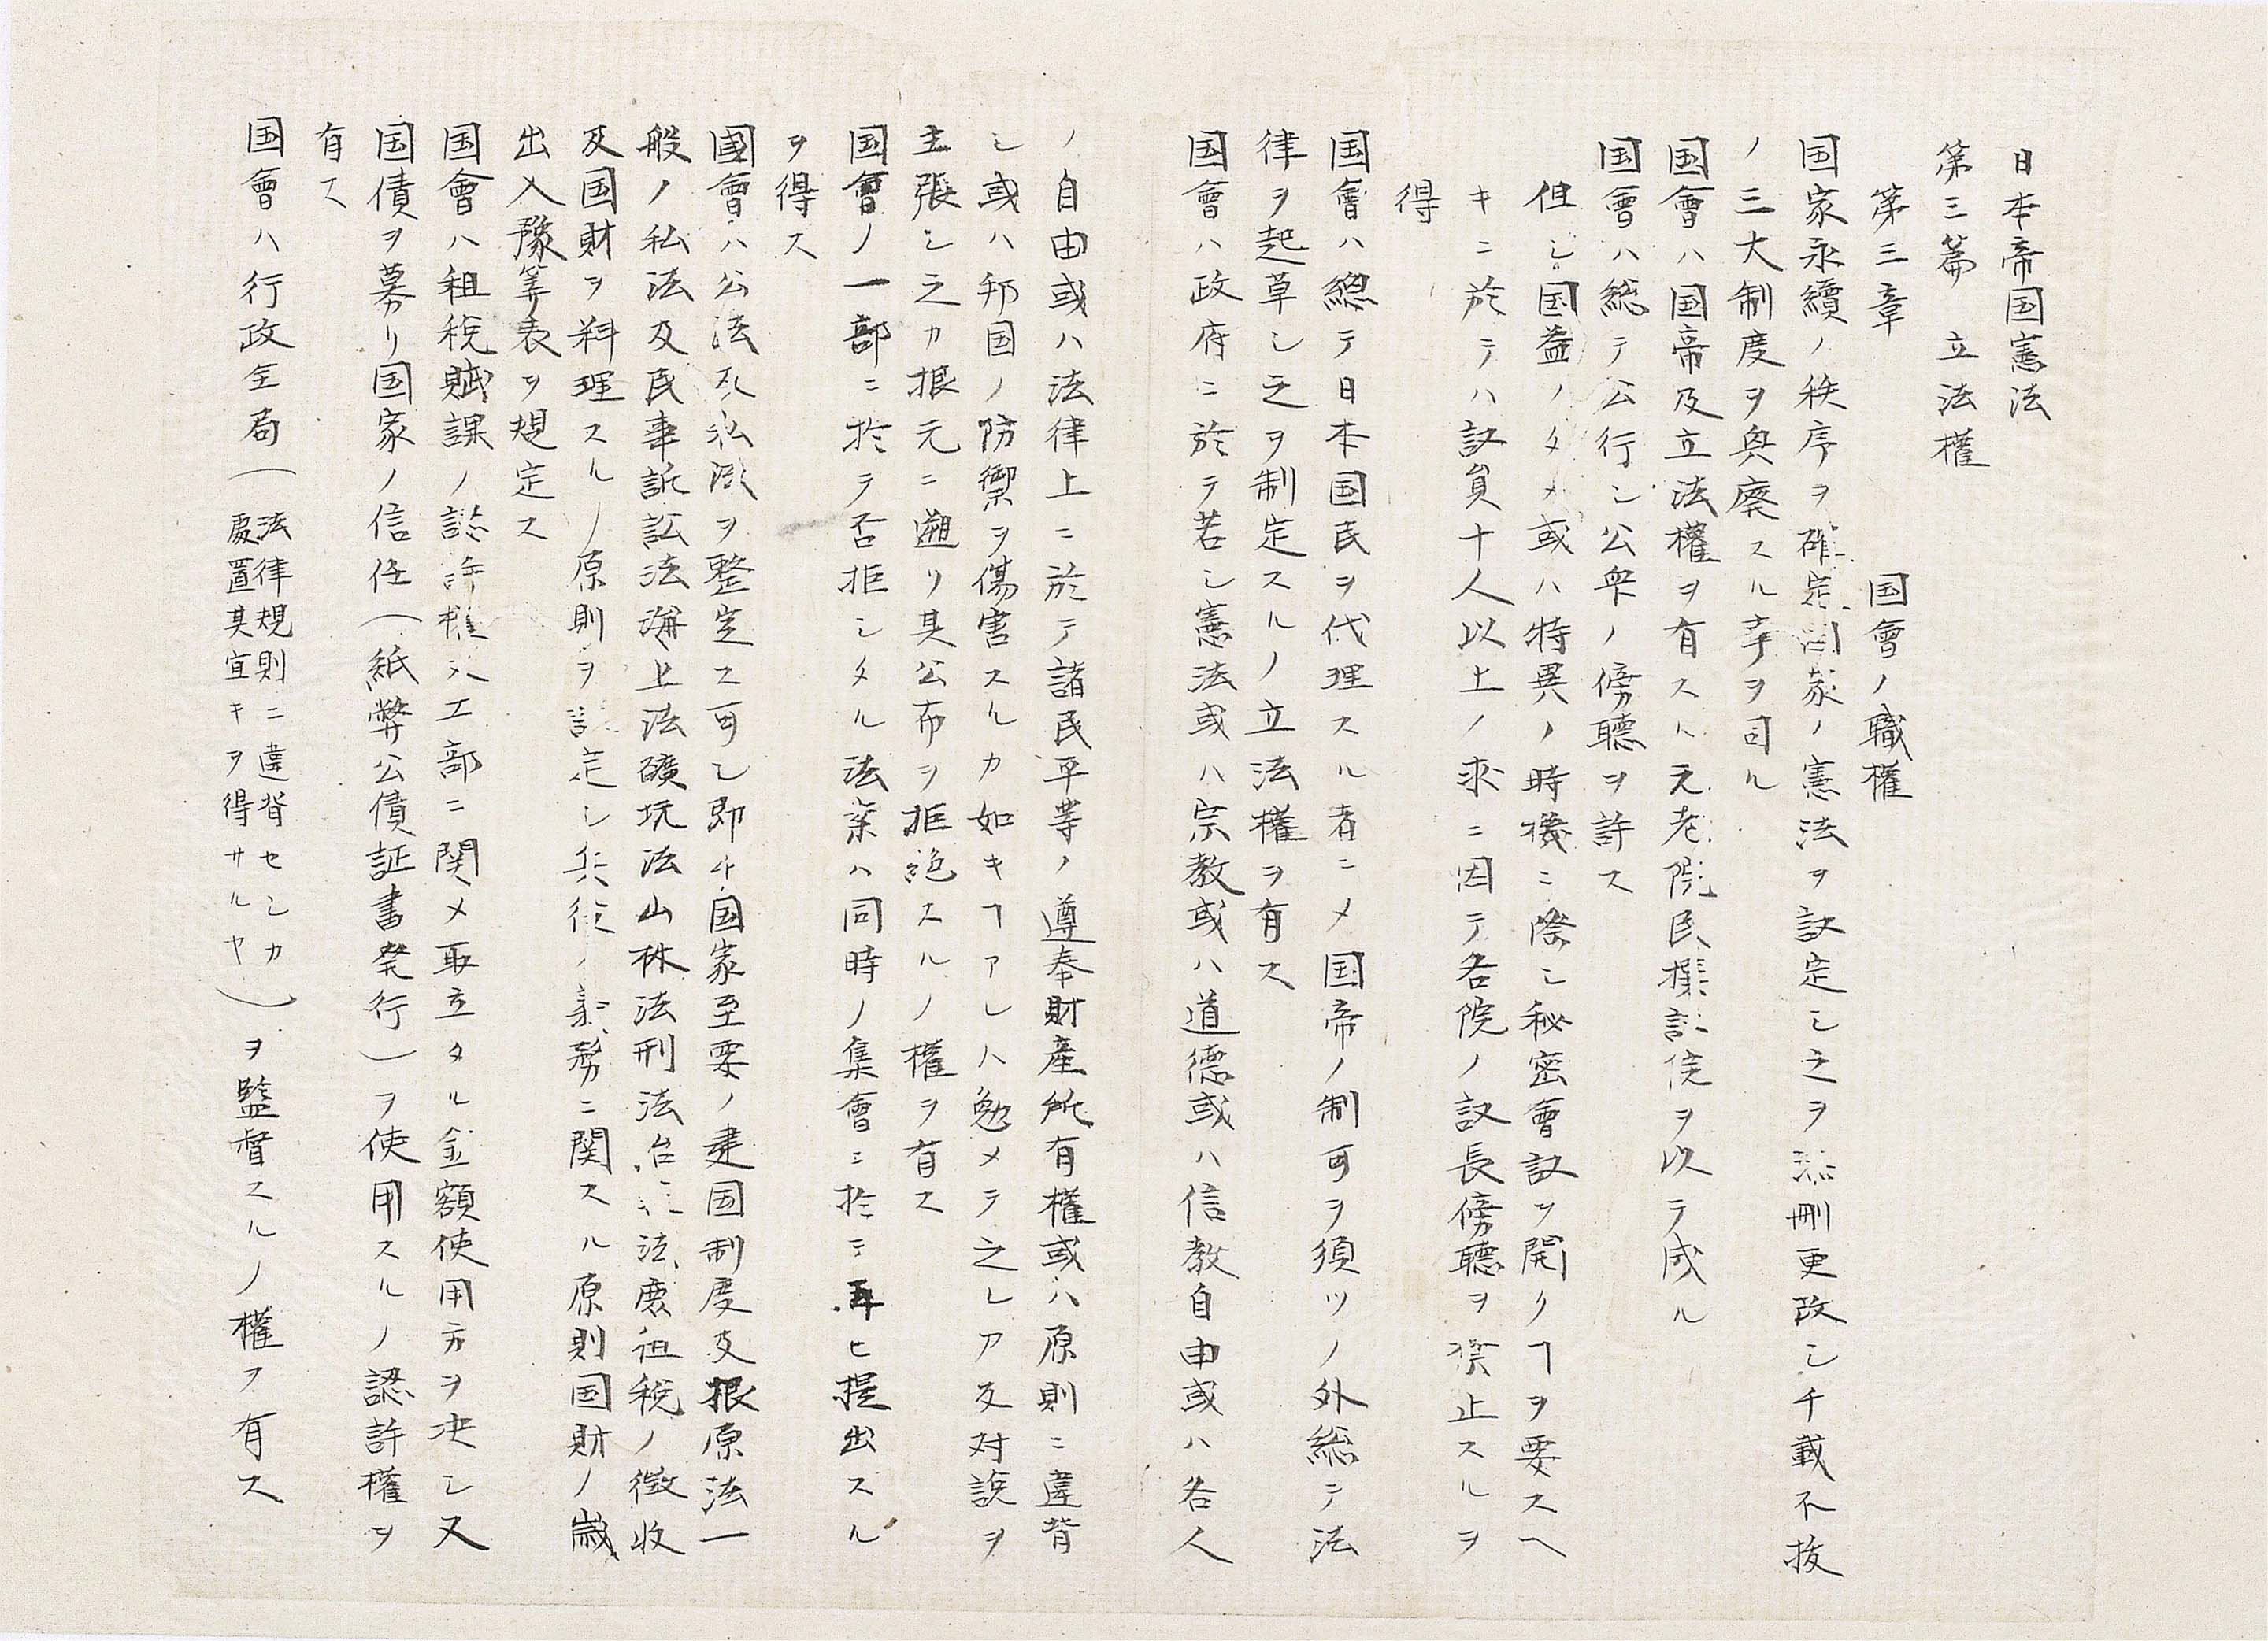 日本帝国憲法
第三篇　立法權
第三章　国會ノ職權
国家永續ノ秩序ヲ確定国家ノ憲法ヲ議定シ之ヲ添刪更改シ千載不抜
ノ三大制度ヲ興廃スル事ヲ司ル
国會ハ国帝及立法權ヲ有スル元老院民撰議院ヲ以テ成ル
国會ハ総テ公行シ公衆ノ傍聽ヲ許ス
但シ国益ノタメ或ハ特異ノ時機ニ際シ秘密會議ヲ開クヿヲ要スヘ
キニ於テハ議員十人以上ノ求ニ因テ各院ノ議長傍聽ヲ禁止スルヲ
得
国會ハ總テ日本国民ヲ代理スル者ニメ国帝ノ制可ヲ須ツノ外総テ法
律ヲ起草シ之ヲ制定スルノ立法權ヲ有ス
国會ハ政府ニ於テ若シ憲法或ハ宗教或ハ道徳或ハ信教自由或ハ各人
ノ自由或ハ法律上ニ於テ諸民平等ノ遵奉財産所有權或ハ原則ニ違背
シ或ハ邦国ノ防禦ヲ傷害スルカ如キヿアレハ勉メテ之レア反対説ヲ
主張シ之カ根元ニ遡リ其公布ヲ拒絶スルノ權ヲ有ス
国會ノ一部ニ於テ否拒シタル法案ハ同時ノ集會ニ於ニ再ヒ提出スル
ヲ得ス
國會ハ公法及私法ヲ整定ス可シ即チ国家至要ノ建国制度及根原法一
般ノ私法及民事訴訟法海上法礦坑法山林法刑法治罪法庶租税ノ徴收
及国財ヲ料理スルノ原則ヲ議定シ兵役ノ義務ニ関スル原則国財ノ歳
出入豫算表ヲ規定ス
国會ハ租税賦課ノ認許權及工部ニ関メ取立タル金額使用方ヲ決シ又
国債ヲ募リ国家ノ信任（紙弊公債証書発行）ヲ使用スルノ認許權ヲ
有ス
国會ハ行政全局（法律規則ニ違背セシカ
處置其宜キヲ得サルヤ）ヲ監督スルノ權ヲ有ス